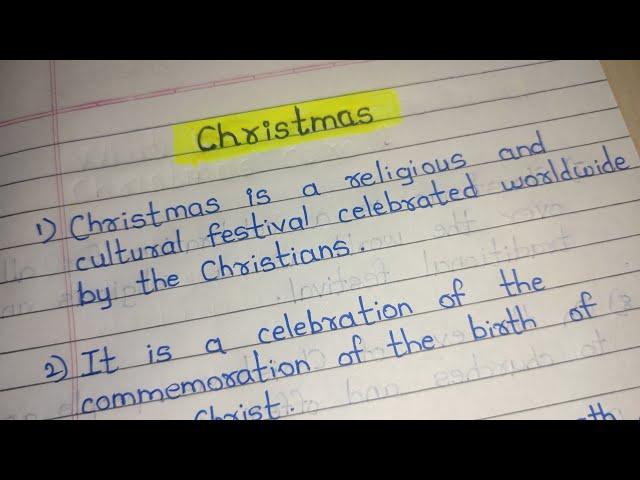 Christmas
1) Christmas is a religious and
cultural festival celebrated worldwide
by the Christians.
2) It is a celebration of the
commemoration of the birth of
Christ.